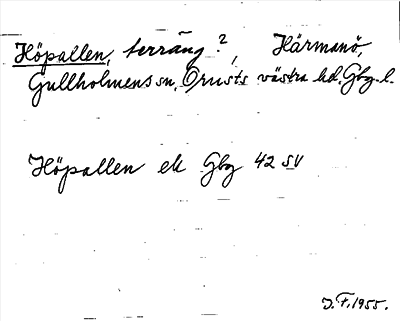 Höpallen, terräng?, Härmanö,
Gullholmens sn, Orusts västra hd. Gbg. l.
Höpallen ek Gbg 42 SV
J.F. 1955.